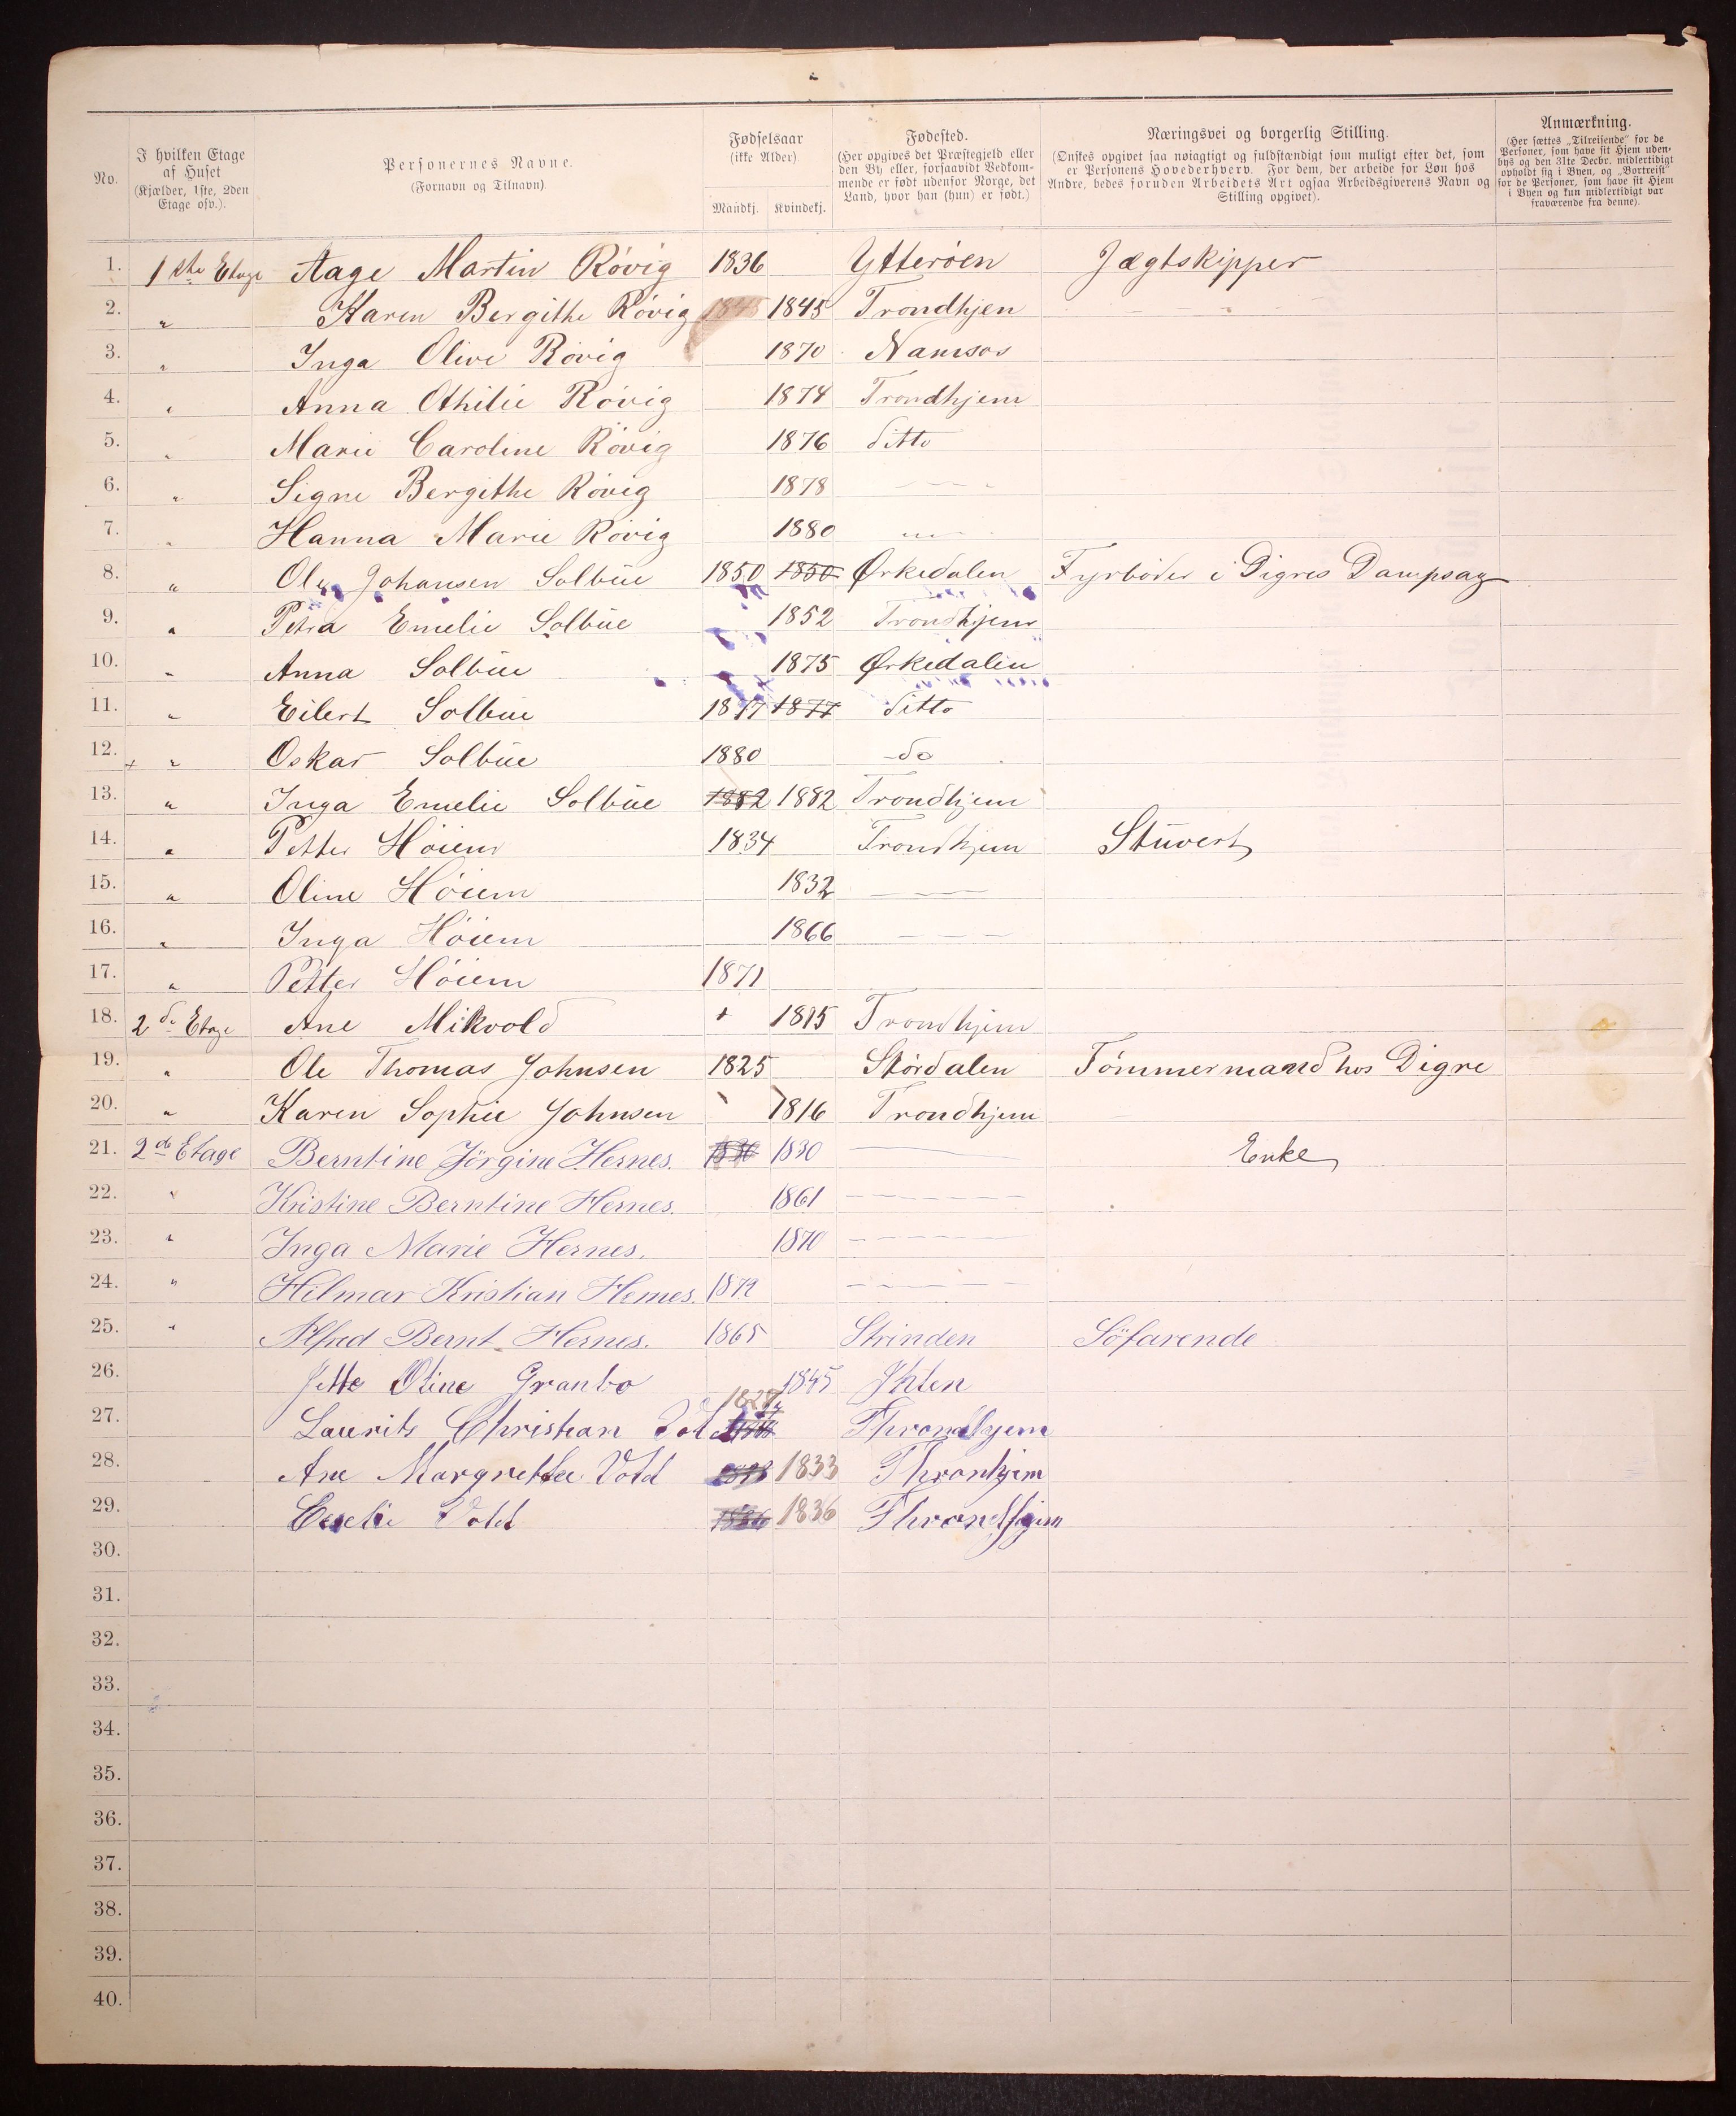 No.
I hvilken Etage af Huset (Kjælder, 1ste, 2den Etage osv.).
Personernes Navne. (Fornavn og Tilnavn)
Fødselsaar (ikke Alder)
Mandkj. Kvindekj.
Fødested. (Her opgives det Præstegjeld eller den By eller, forsaavidt Vedkommende er født udenfor Norge, det Land, hvor han (hun) er født.)
Næringsvei og borgerlig Stilling. (Ønskes opgivet saa nøiagtigt og fuldstændigt som muligt efter det, som er Personens Hovederhverv. For dem, der arbeide for Løn hos Andre, bedes foruden Arbeidets Art ogsaa Arbeidsgiverens Navn og Stilling opgivet).
Anmærkning. (Her sættes „Tilreisende" for de Personer, som have sit Hjem udenbys og den 31te Decbr. midlertidigt opholdt sig i Byen, og „Bortreist" for de Personer, som have sit Hjem i Byen og kun midlertidigt var fraværende fra denne).
1. 1ste Etage Aage Martin Rövig 1836 Ytteröen Jægtskipper
2. " Karen Bergithe Rövig 1845 1845 Trondhjen
3. " Inga Olive Rövig 1870 Namsos
4. " Anna Othilie Rövig 1874 Trondhjem
5. " Marie Caroline Rövig 1876 ditto
6. " Signe Bergithe Rövig 1878 — — —
7. " Hanna Marie Rövig 1880 —
8. " Ole Johansen Solbüe 1850 1850 Ørkedalen Fyrböder i Digres Dampsag
9. " Petra Emelie Solbüe 1852 Trondhjem
10. " Anna Solbüe 1875 Ørkedalen
11. " Eilert Solbüe 1877 1877 ditto
12. + " Oskar Solbüe 1880 do
13. " Inga Emelie Solbüe 1882 1882 Trondhjem
14. " Petter Höiem 1834 Trondhjem Stüvert
15. " Oline Höiem 1832 — — —
16. " Inga Höiem 1866 — — —
17. " Petter Höiem 1871
18. 2de Etage Ane Mikvold + 1815 Trondhjem
19. " Ole Thomas Johnsen 1825 Stördalen Tömmermand hos Digre
20. " Karen Sophie Johnsen 1816 Trondhjem
21. 2de Etage Berntine Jörgine Hernes. 1830 — Enke
22. " Kristine Berntine Hernes. 1861 — — — —
23. " Inga Marie Hernes. 1870 — — — —
24. " Hilmar Kristian Hernes. 1872 — — — —
25. " Alfred Bernt Hernes. 1865 Strinden Söfarende
26. Jette Otine Granbo 1845
27. Laurits Christian Vold 1827 Throndhjem
28. Ane Margrethe Vold 1833 Thronhjem
29. Vold 1836 Throndhjem
30.
31.
32.
33.
34.
35.
36.
37.
38.
39.
40.